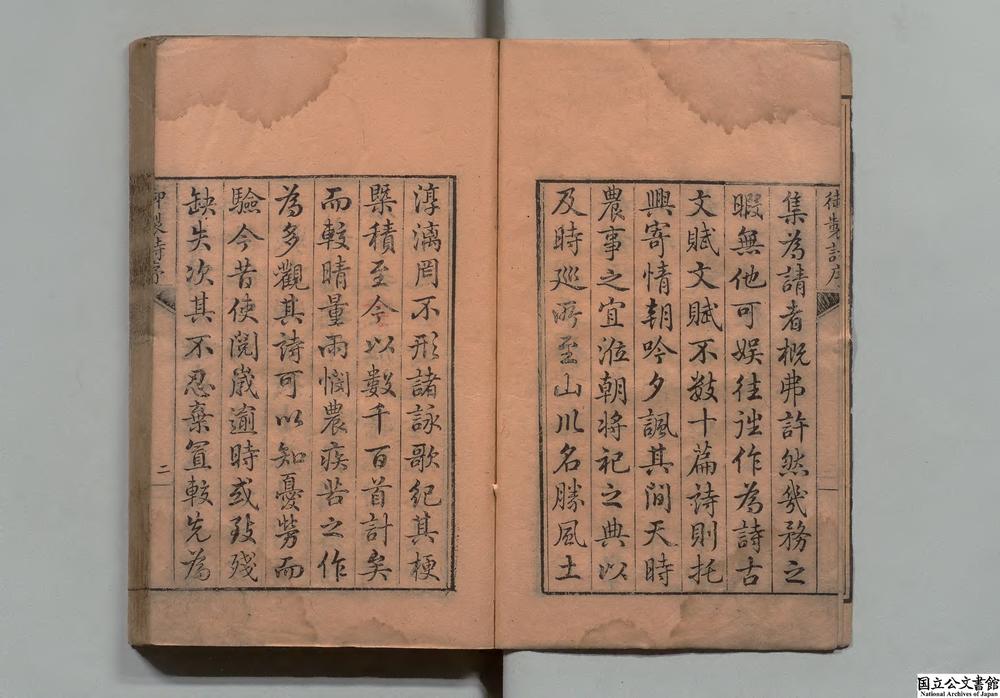 御製詩序
集為請者概弗許然幾務之
暇無他可娱往往作為詩古
文賦文賦不數十篇詩則托
興寄情朝吟夕諷其間天時
農事之宜涖朝将祀之典以
及時廵所至山川名勝風土
淳漓罔不形諸詠歌紀其梗
槩積至今以數千百首計矣
而較晴量雨憫農疾苦之作
為多觀其詩可以知憂勞而
驗今昔使閱嵗逾時或致殘
缺失次其不忍棄置較先為
御製詩序
二
国立公文書館
National Archives of Japan